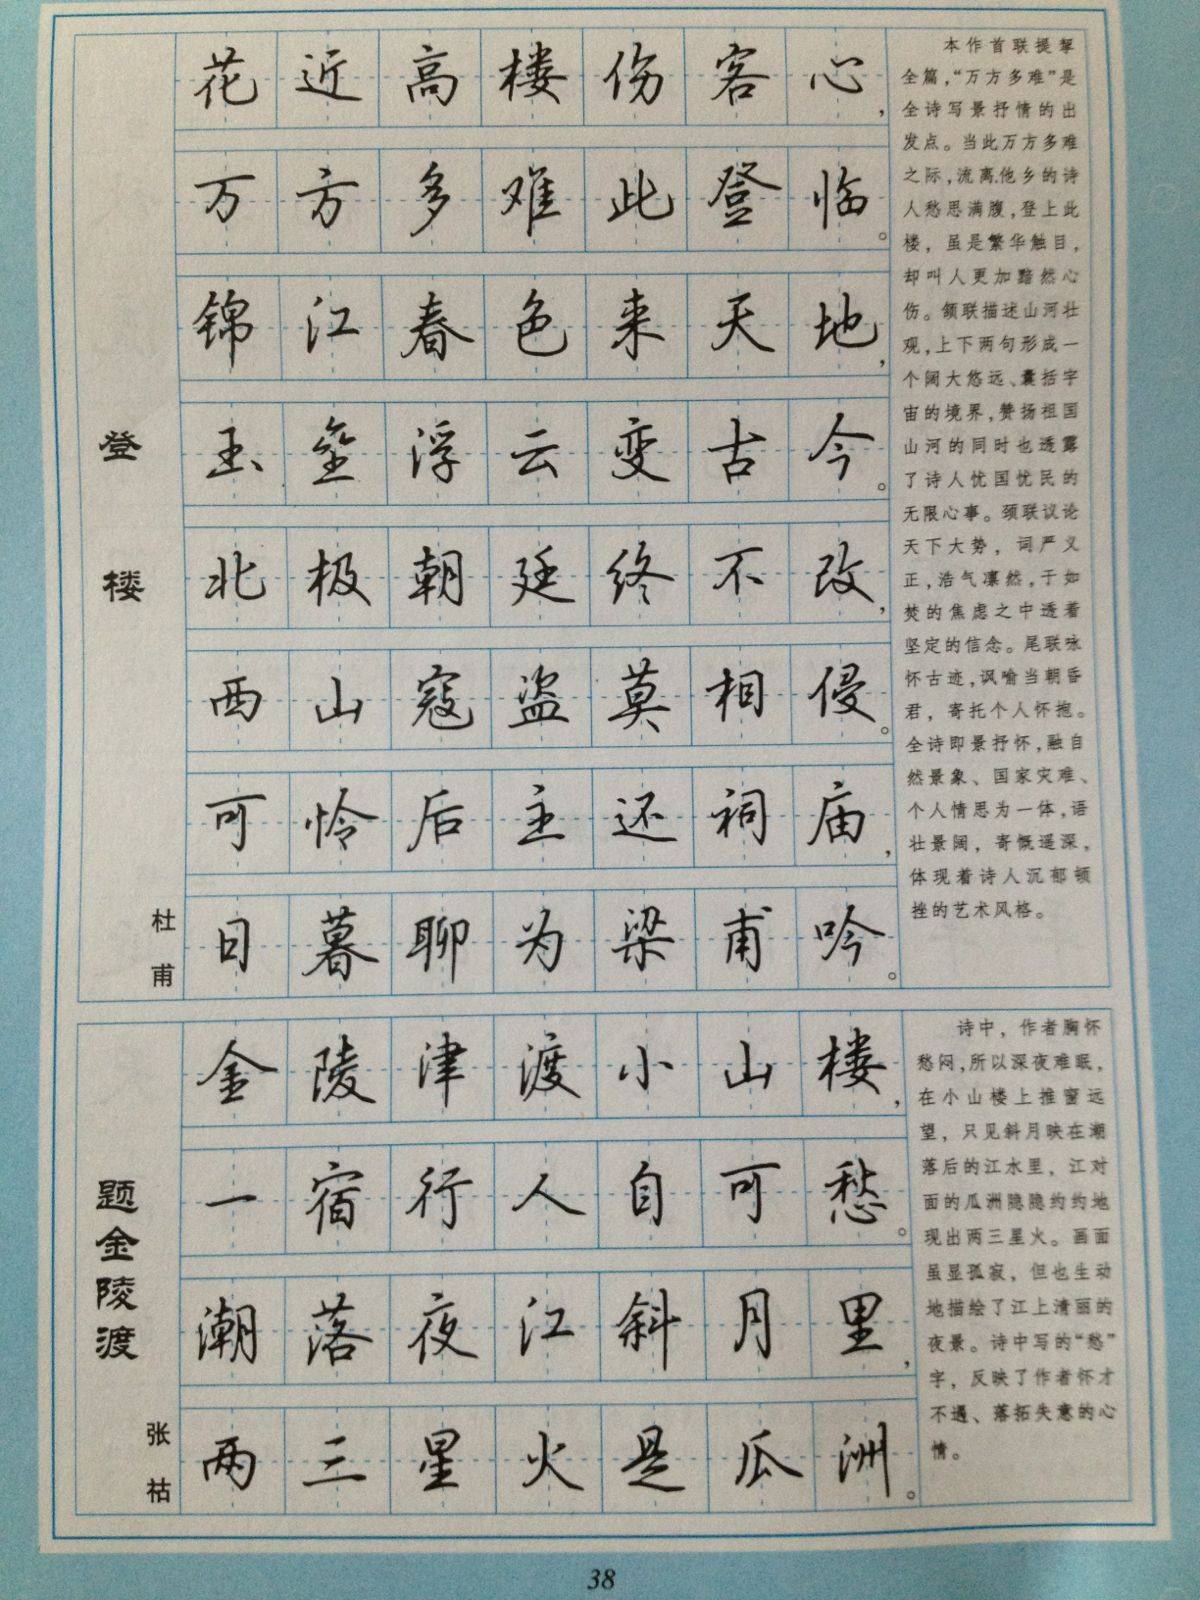 登楼
杜甫
花近高楼伤客心，
万方多难此登临。
锦江春色来天地，
玉垒浮云变古今。
北极朝廷终不改，
西山寇盗莫相侵。
可怜后主还祠庙，
日暮聊为梁甫吟。
本作首联提挈
全篇，“万方多难”是
全诗写景抒情的出
发点。当此万方多难
之际，流离他乡的诗
人愁思满腹，登上此
楼，虽是繁华触目，
却叫人更加黯然心
伤。颔联描述山河壮
观，上下两句形成一
个阔大悠远、囊括宇
宙的境界，赞扬祖国
山河的同时也透露
了诗人忧国忧民的
无限心事。颈联议论
天下大势，词严义
正，浩气凛然，于如
焚的焦虑之中透着
坚定的信念。尾联咏
怀古迹，讽喻当朝昏
君，寄托个人怀抱。
全诗即景抒怀，融自
然景象、国家灾难、
个人情思为一体，语
壮景阔，寄慨遥深，
体现着诗人沉郁顿
挫的艺术风格。
题金陵渡
张祜
金陵津渡小山楼，
一宿行人自可愁。
潮落夜江斜月里，
两三星火是瓜洲。
诗中，作者胸怀
愁闷，所以深夜难眠，
在小山楼上推窗远
望，只见斜月映在潮
落后的江水里，江对
面的瓜洲隐隐约约地
现出两三星火。画面
虽显孤寂，但也生动
地描绘了江上清丽的
夜景。诗中写的“愁”
字，反映了作者怀才
不遇、落拓失意的心
情。
38